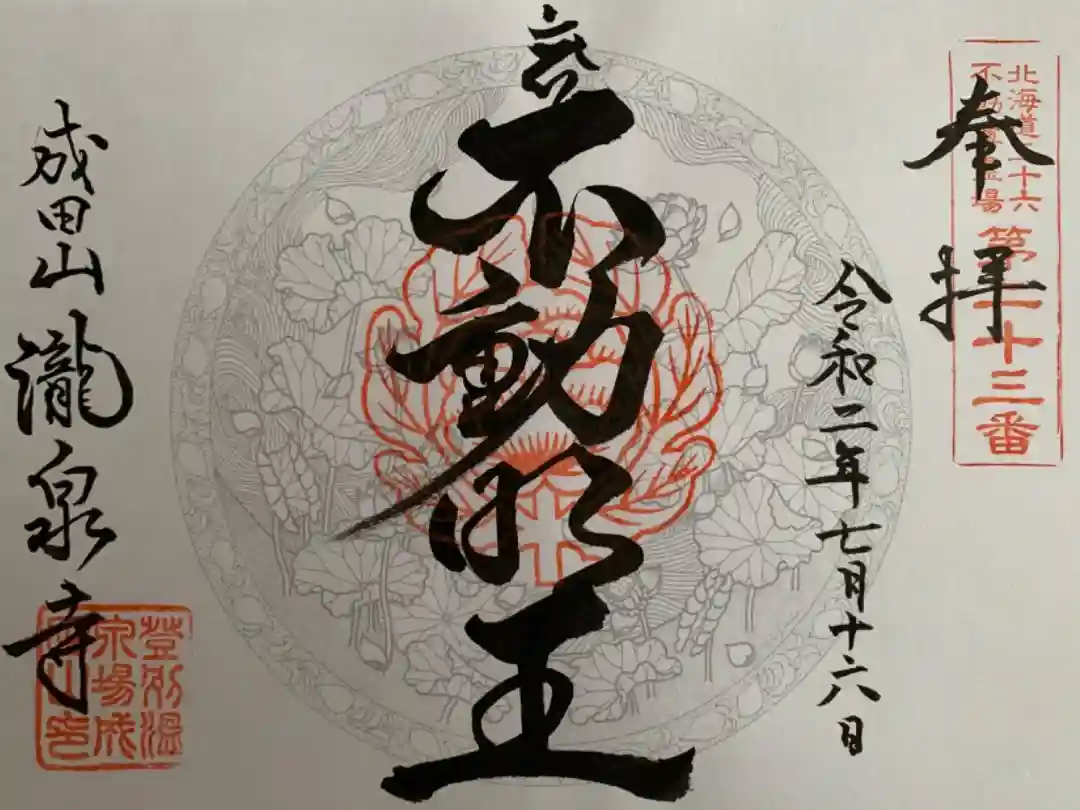 北海道三十六
不動尊霊場
第二十三番
奉拝
令和二年七月十六日
不動明王
成田山瀧泉寺
登別温
泉場成
田山印